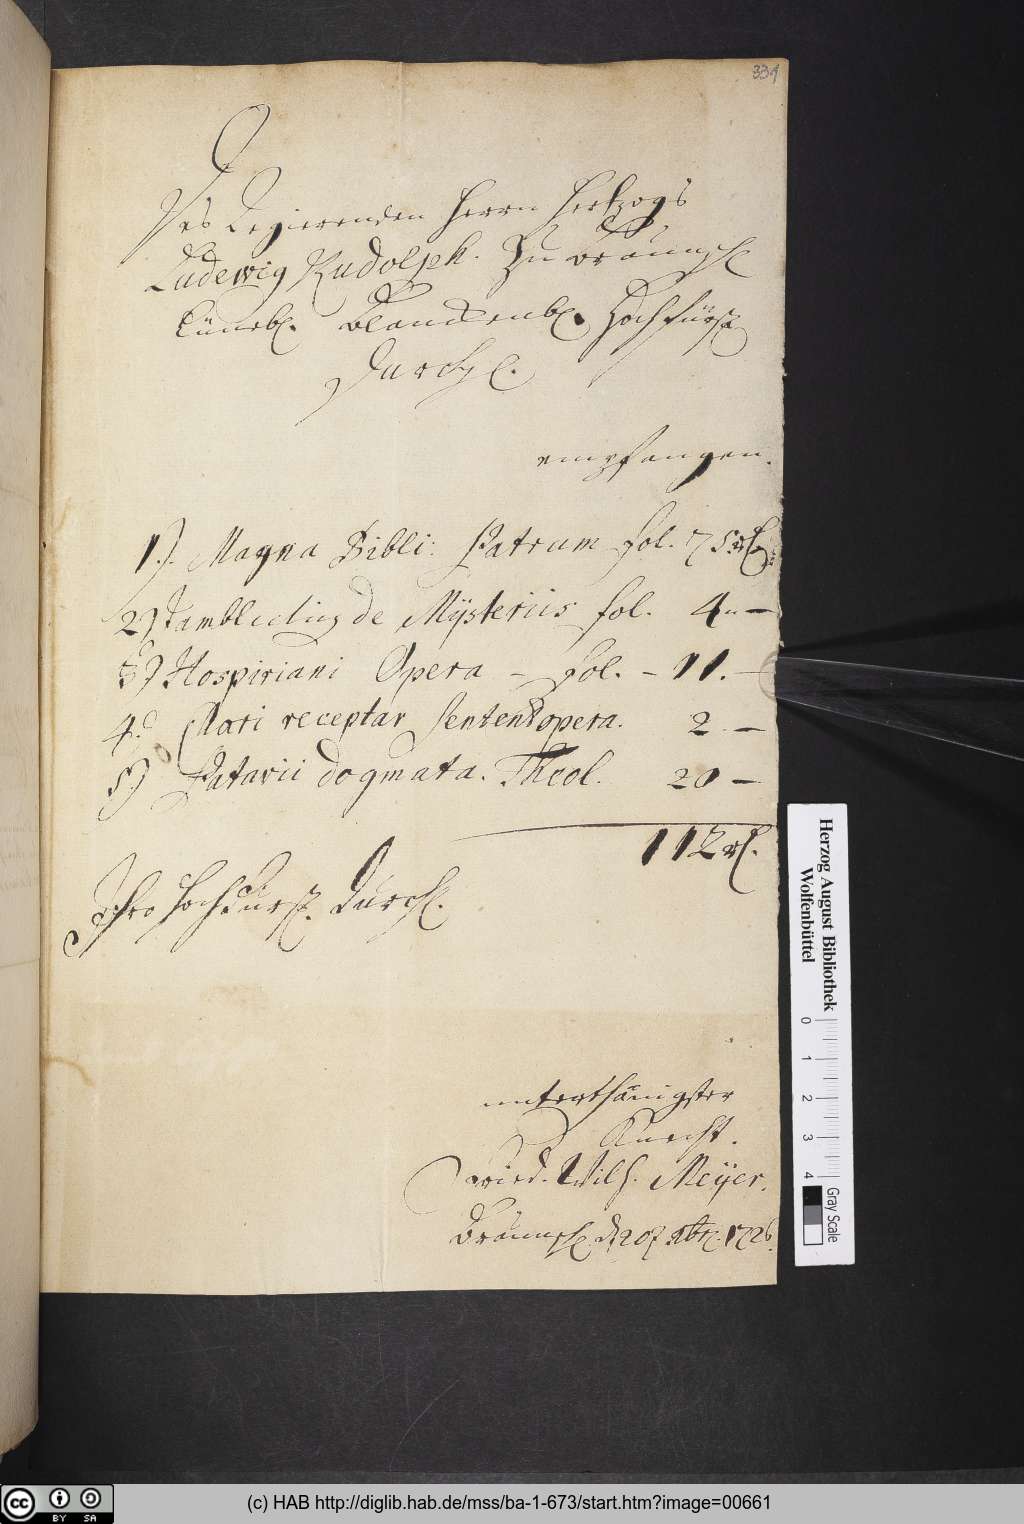 334
Des Regierenden Herrn Hertzogs
Ludewig Rudolph. Zu Braunschl
Lünebl. Blanckenbl. Hochfürstl
Durchl.
empfangen.
1.). Magna Bibli: Patrum fol. 75 rl
2) Jamblichus de Mÿsteriis fol. 4 „ —
3) Hospiriani Opera – fol. – 11. —
4.) Clari receptar Sentent opera. 2. —
5.) Patavii dogmata. Theol. 20 —
112 rl.
Ihro Hochfürstl. Durchl.
unterthänigster
Knecht.
Fried. Wilh. Meÿer.
Braunschl. d. 20t 1726.
Herzog August Bibliothek
Wolfenbüttel
0 1 2 3 4
Gray Scale
cc BY SA
(c) HAB http://diglib.hab.de/mss/ba-1-673/start.htm?image=00661